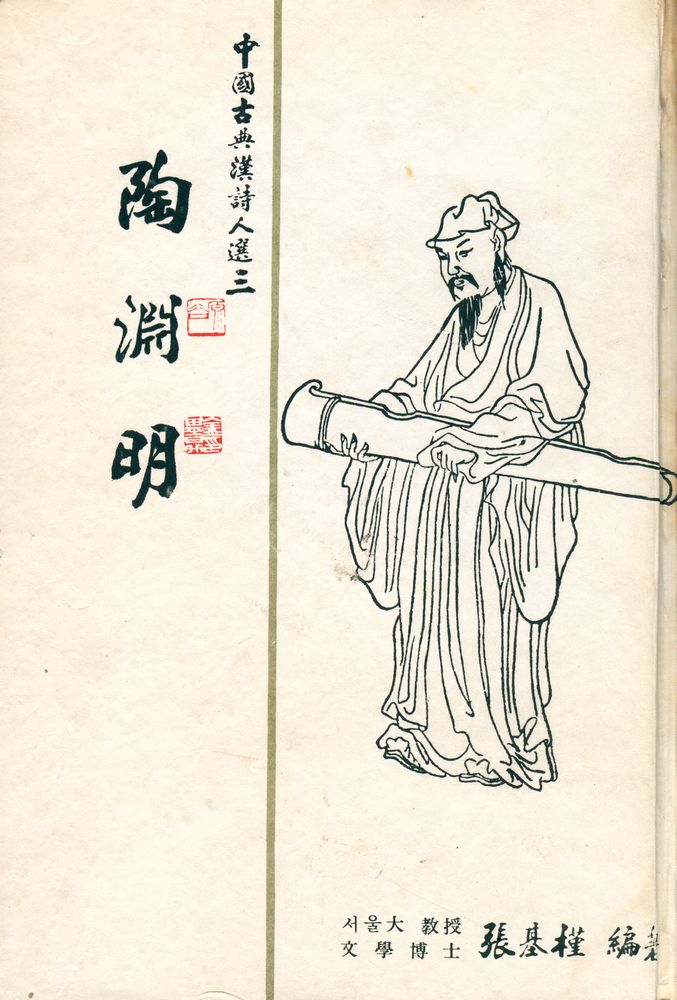 中國古典漢詩人選三
陶淵明
서울大 教授
文學博士
張基槿 編著